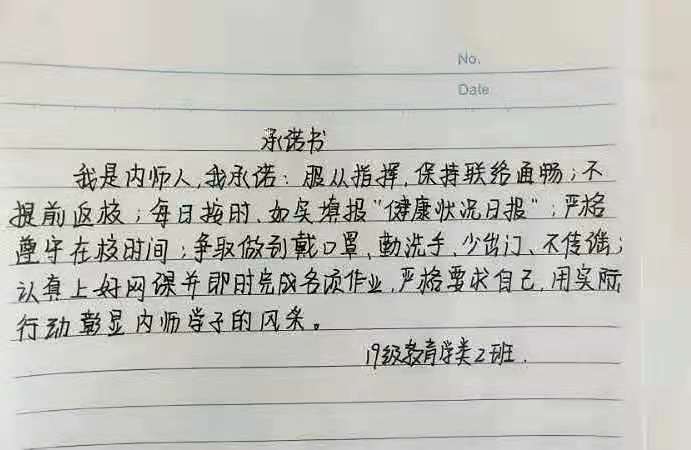 No.
Date
承诺书
我是内师人,我承诺:服从指挥,保持联络通畅;不
提前返校;每日按时、如实填报“健康状况日报”;严格
遵守在校时间;争取做到戴口罩、勤洗手、少出门、不传谣;
认真上好网课并即时完成各项作业,严格要求自己,用实际
行动彰显内师学子的风采。
19级教育学类2班.